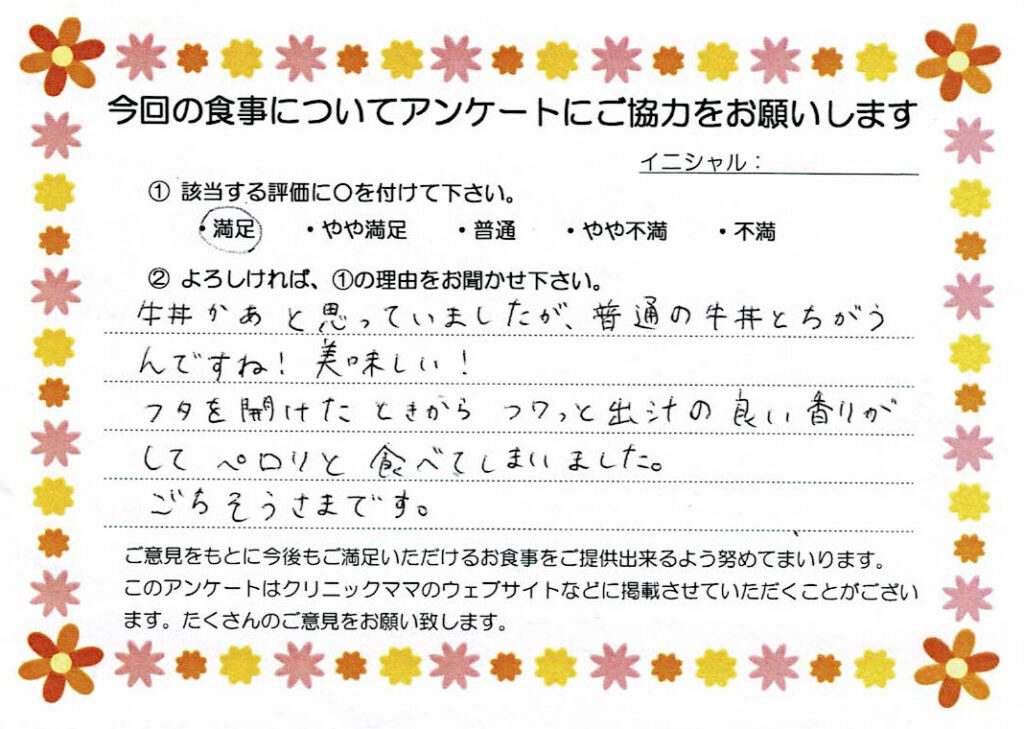 今回の食事についてアンケートにご協力をお願いします
イニシャル：
① 該当する評価に〇を付けて下さい。
・満足 ・やや満足 ・普通 ・やや不満 ・不満
② よろしければ、①の理由をお聞かせ下さい。
牛丼かあと思っていましたが、普通の牛丼とちがう
んですね！美味しい！
フタを開けたときから フワっと出汁の良い香りが
して ペロリと 食べてしまいました。
ごちそうさまです。
ご意見をもとに今後もご満足いただけるお食事をご提供出来るよう努めてまいります。
このアンケートはクリニックママのウェブサイトなどに掲載させていただくことがござい
ます。たくさんのご意見をお願い致します。